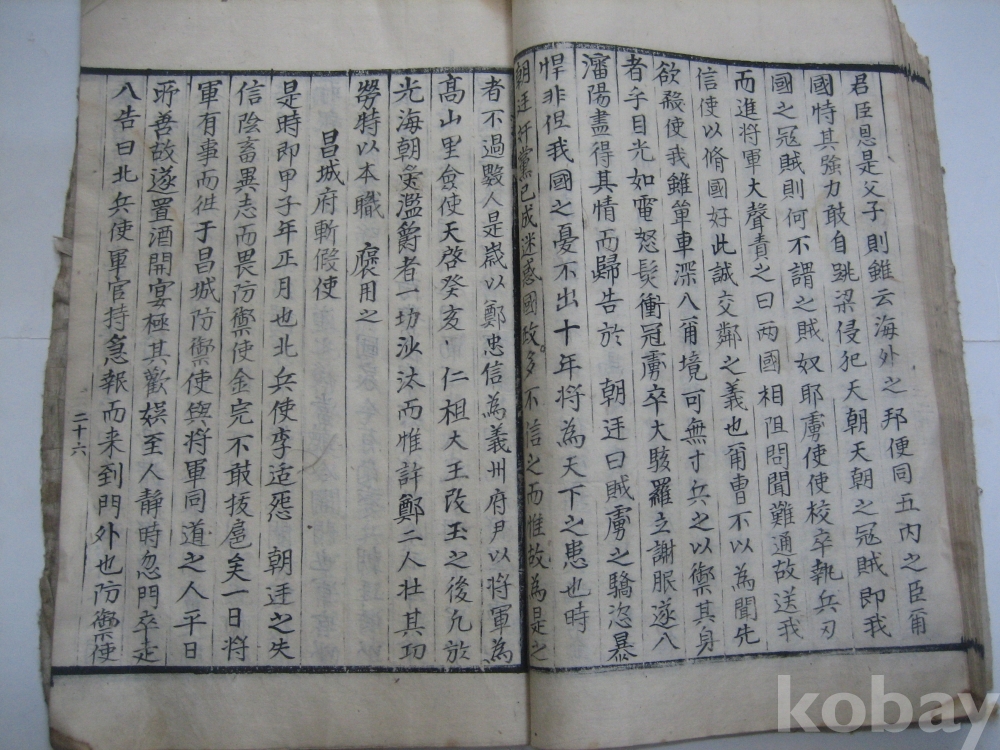 君臣恩是父子則雖云海外之邦便同五內之臣甭
國恃其強力敢自跳梁侵犯天朝天朝之冦賊即我
國之冦賊則何不謂之賊奴耶虜使使校卒執兵刃
而進將軍大聲責之曰两國相阻問聞難通故送我
信使以脩國好此誠交鄰之義也甭曹不以為聞先
欲殺使我雖單車深入甭境可無寸兵之以禦其身
者乎目光如電怒髮衝冠虜卒大駭羅立謝服遂入
瀋陽盡得其情而歸告於 朝廷曰賊虜之驕恣暴
悍非但我國之憂不出十年將為天下之患也時
朝廷奸黨已成迷惑國政多不信之而惟故為是之
者不過數人是嵗以鄭忠信為義州府尹以將軍為
髙山里僉使天啓癸亥 仁祖大王改玉之後凢於
光海朝彙濫爵者一切沙汰而惟許鄭二人壮其功
勞特以本職 褒用之
昌城府斬假使
是時即甲子年正月也北兵使李适怨 朝廷之失
信陰畜異志而畏防禦使金完不敢拔扈矣一日將
軍有事而徃于昌城防禦使與將軍同道之人平日
所善故遂置酒開宴極其歡娛至人靜時忽門卒走
入告曰北兵使軍官持急報而来到門外也防禦使
二十六
kobay